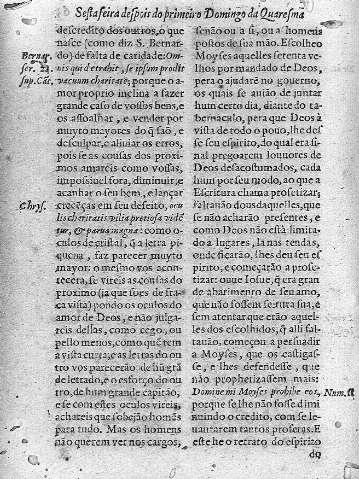 Sesta feira despois do primeiro Domingo da Quaresma
descredito dos outros, o que
nasce (como diz S. Bernar-
do) de falta de caridade: Om-
nis qui detrahit, se ipsum prodit
vacuum charitate; porque o a-
mor proprio inclina a fazer
grande caso de vossos bens, e
os assoalhar, e vender por
muyto mayores do q̃ saõ, e
desculpar, e aliuiar os erros,
pois se as cousas dos proxi-
mos amareis como vossas,
impossiuel fora, diminuir, e
acanhar o seu bem, e lançar
em seu defeito, oculi
charitatis vilia pretiosa vidē
tur, & parua magna: como o-
culos de cristal, q̃ a letra pi-
quena, faz parecer muyto
mayor: o mesmo vos acon-
tecera, se vireis as cousas do
proximo (ja que sois de fra-
ca vista) pondo os oculos do
amor de Deos, e não julga-
reis dellas, como cego, ou
pello menos, como quē tem
a vista curta, e as letras do ou
tro vos parecerão de hũ grã
de letrado, e o esforço do ou
tro, de hum grande capitão,
e se com estes oculos vireis,
achareis que sobejão homēs
para tudo. Mas os homens
não querem ver nos cargos,
Bernar.
ser. 24.
sup. Cāt.
Chrys.
senão ou a si, ou a homens
postos de sua mão. Escolheo
Moyses aquelles setenta ve-
lhos por mandado de Deos,
pera o ajudarē no gouerno,
os quais se auião de juntar
hum certo dia, diante do ta-
bernaculo, pera que Deos à
vista de todo o pouo, lhe des
se seu espirito, do qual era si-
nal pregoarem louuores de
Deos desacostumados, cada
hum por seu modo, ao que a
Escritura chama profetizar;
faltarão dous daquelles, que
se não acharão presentes, e
como Deos não està limita-
do a lugares, là nas tendas,
onde ficarão, lhes deu seu es
pirito, e começarão a profe-
tizar: onde Iosue, q̃ era gran-
de a de seu amo,
que não fossem se fruta sua, e
sem atentar que erão aquel-
les dos escolhidos, q̃ alli fal-
tauão, começou a persuadir
a Moyses, que os castigas-
se, e lhes defendesse, que
não prophetizassem mais:
Domine mi Moyses prohibe eos,
porque se lhe não fosse dimi
nuindo o credito, com se le-
uantarem tantos profetas. E
este he o retrato do espirito
Num. 11
do